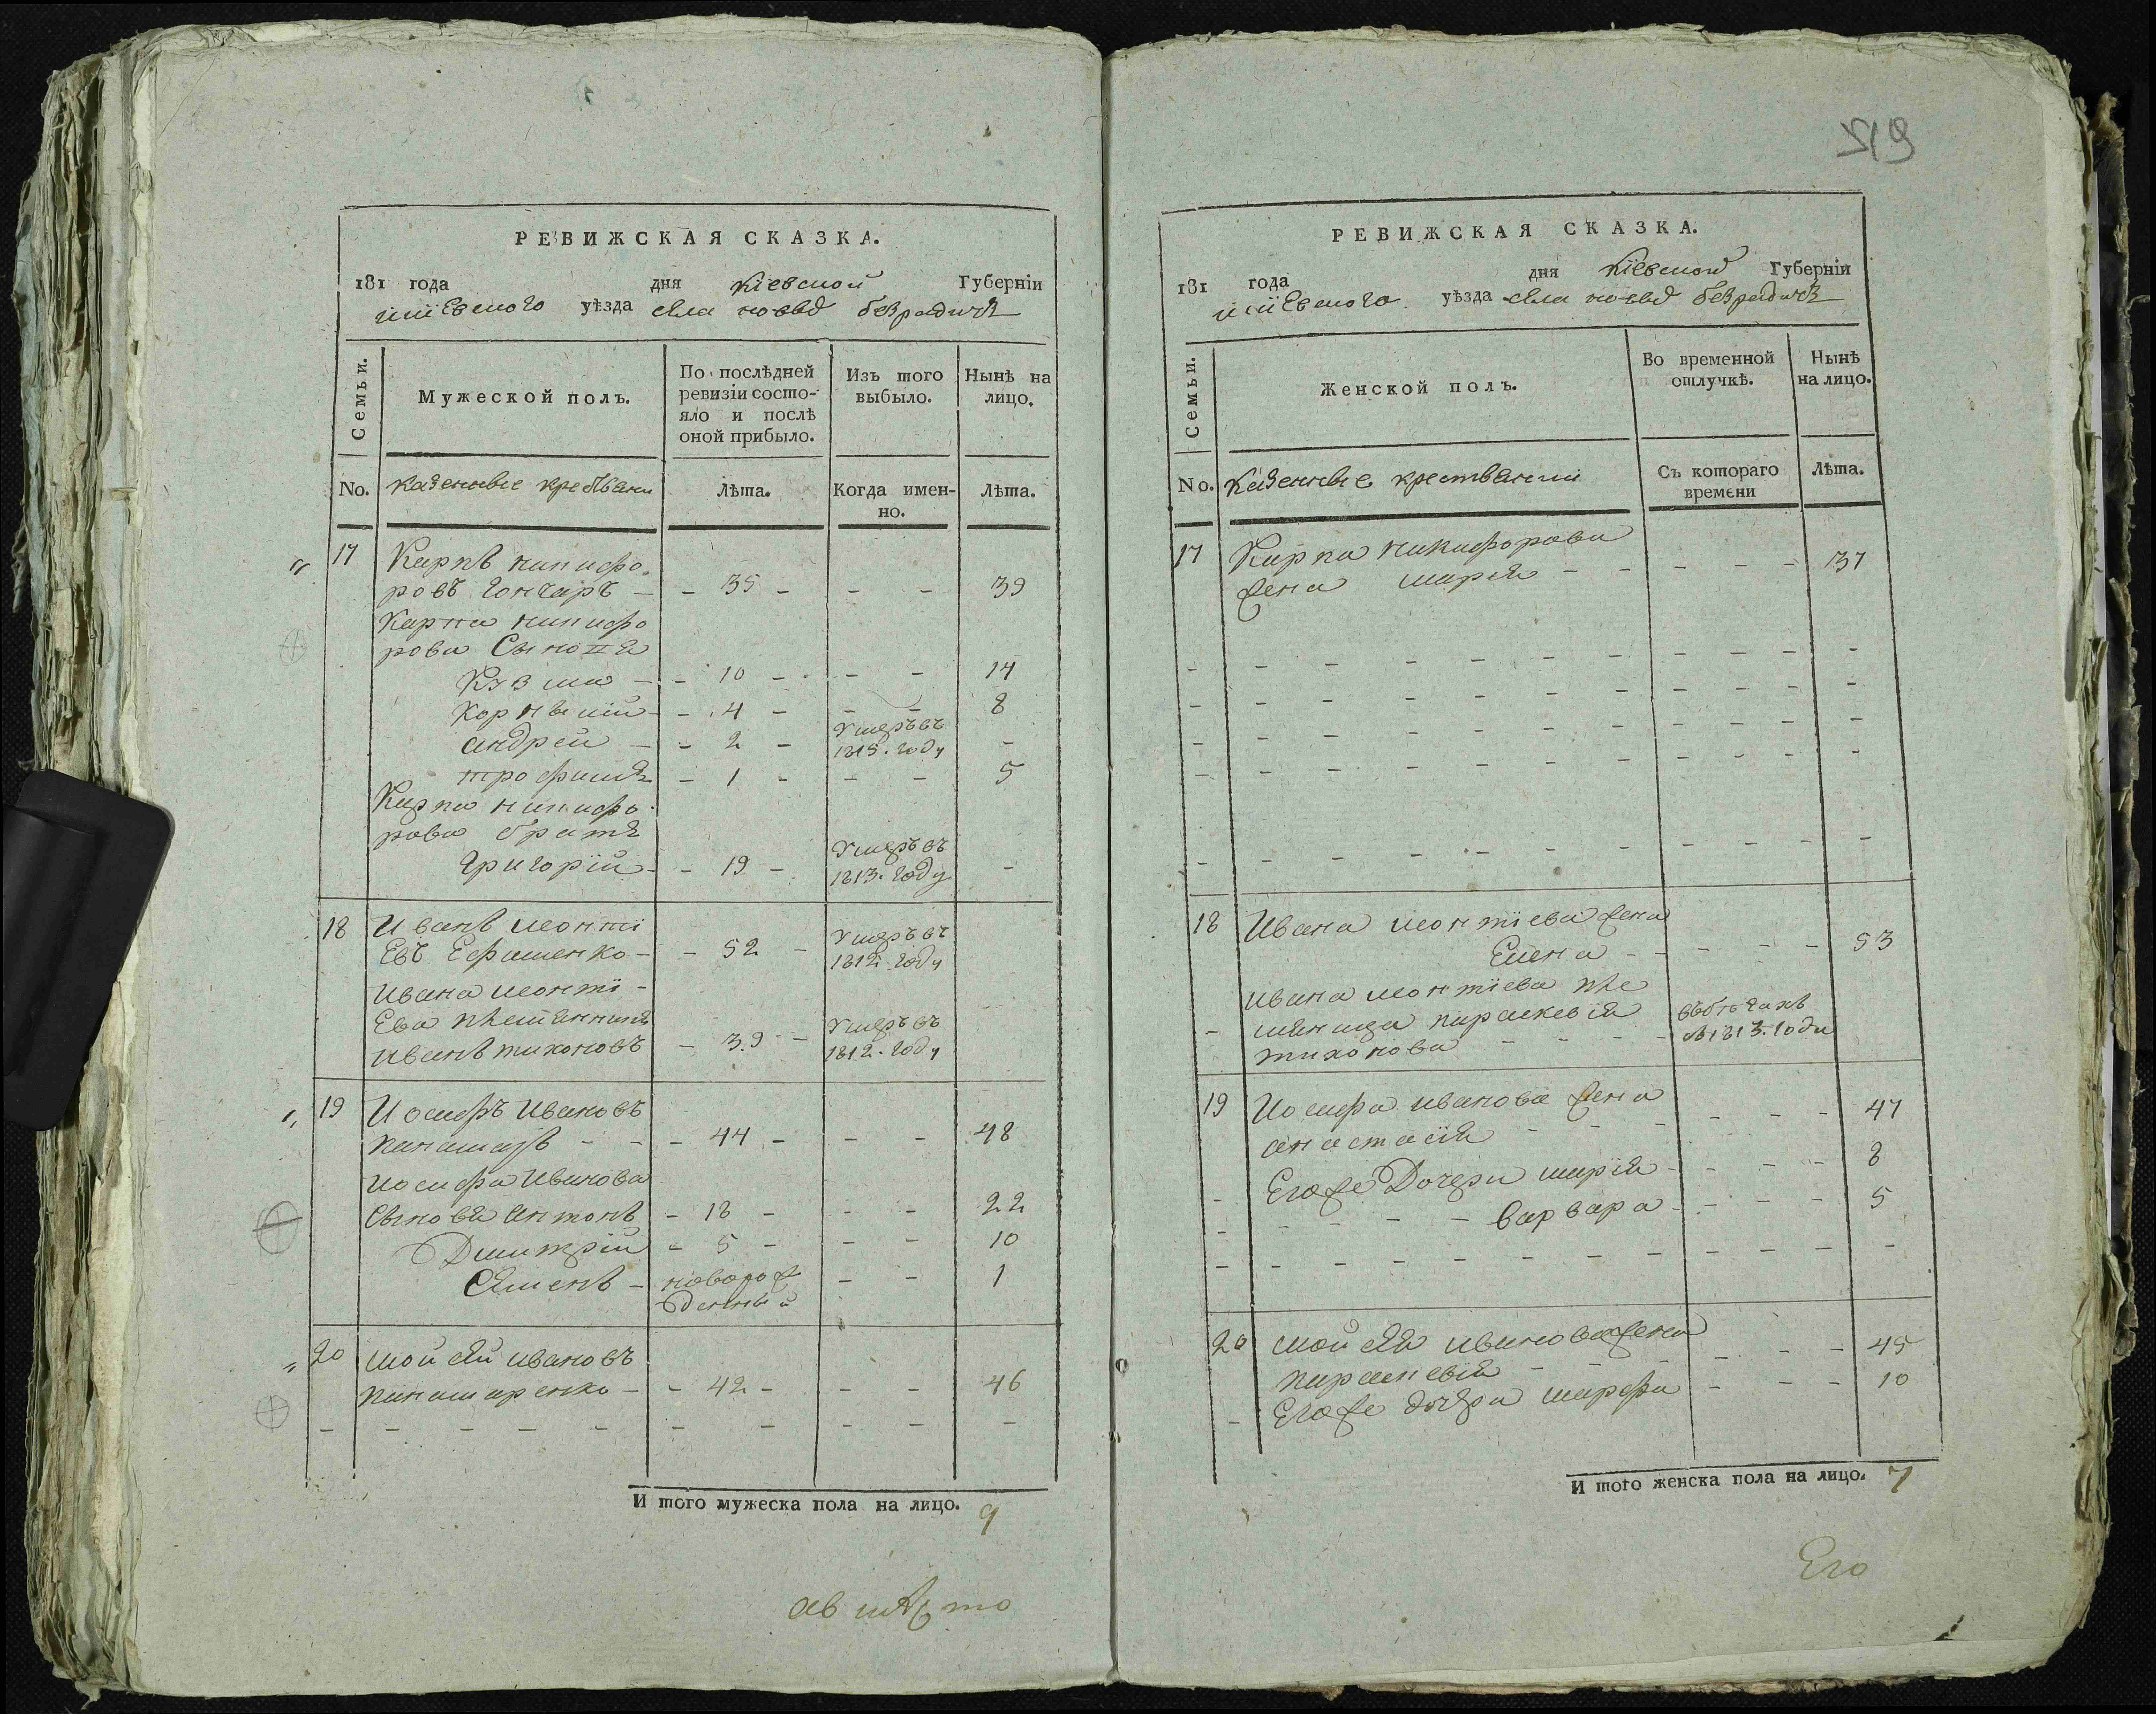 РЕВИЖСКАЯ СКАЗКА.
181 года дня Кіевской Губерніи
кіи҃евского уѣзда села новыѣ безрадичѣ
Семьи.
Мужеской полъ.
По послѣдней
ревизіи состо-
яло и послѣ
оной прибыло.
Изъ того
выбыло.
Нынѣ на
лицо.
No. казенные крестьяни
Лѣта.
Когда имен-
но.
Лѣта.
17 Карпъ никифо
ровъ гончаръ - - 35 - - - 39
Карпа никифо
рова Сыновья
Кузма - - 10 - - - 14
Корнылій - 4 - - - 8
андрей - - 2 - Умеръ въ 1813. году -
трофимъ - 1 - - - 5
Карпа никифо
рова братъ
Григорій - - 19 - Умеръ въ 1813. году -
18 Иванъ леонті
Евъ Ефименко - - 52 - Умеръ въ 1812. году
Ивана леонті -
Ева племянникъ
иванъ тихоновъ - 39 - Умеръ въ 1812. году
19 Иосифъ Ивановъ
панамаръ - - - 44 - - - 48
иосифа Иванова
Сыновья Антонъ - 18 - - - 22
Дмитрій - 5 - - - 10
Семенъ - новорож - - 1
денный
20 мойсей ивановъ
панамаренко - - 42 - - - 46
- - - - - - - - - -
И того мужеска пола на лицо. 9
519
РЕВИЖСКАЯ СКАЗКА.
181 года дня Кіевской Губерніи
уѣзда села новыѣ безрадичѣ
Семьи.
Женской полъ.
Во временной
отлучкѣ.
Нынѣ
на лицо.
No. казенные крестьянки
Съ котораго
времени
Лѣта.
17 Карпа никифорова
жена марія - - - - - 37
- - - - - - - - - - -
- - - - - - - - - - -
- - - - - - - - - - -
- - - - - - - - - - -
- - - - - - - - - - -
18 Ивана леонтіева жена
Елена - - - - - 53
ивана леонтіева пле
- мяница параскевія
тихонова - - - - 1813. года
19 Иосифа иванова жена
анастасія - - - - - - 47
- Егоже Дочери марія - - - - 8
- - - - - варвара - - - - 5
- - - - - - - - - - -
20 мойсея иванова жена
параскевія - - - - - - 45
- Егоже дочери марфа - - - 10
И того женска пола на лицо. 7
Его